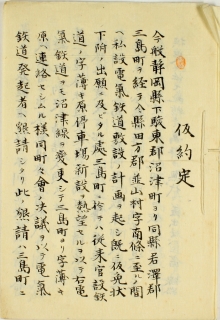 仮約定
今般静岡縣下駿東郡沼津町ヨリ同縣君澤郡
三島町ヲ経テ同縣田方郡韮山村字南條ニ至ルノ間
ヘ私設電氣鉄道敷設ノ計画ヲ起シ既ニ仮免状
下附ノ出願ニ及ビタル處三島町ニ於テハ従来官設鉄
道ノ字薄原停車場新設熱望セルヲ以テ右電
氣鉄道ヲモ沼津線ヲ変更シテ三島町ヨリ字薄
原ヘ連絡セシムル様同町々會ノ決議ヲ以テ電氣
鉄道発起者ヘ懇請シタリ此ノ懇請ハ三島町ニ